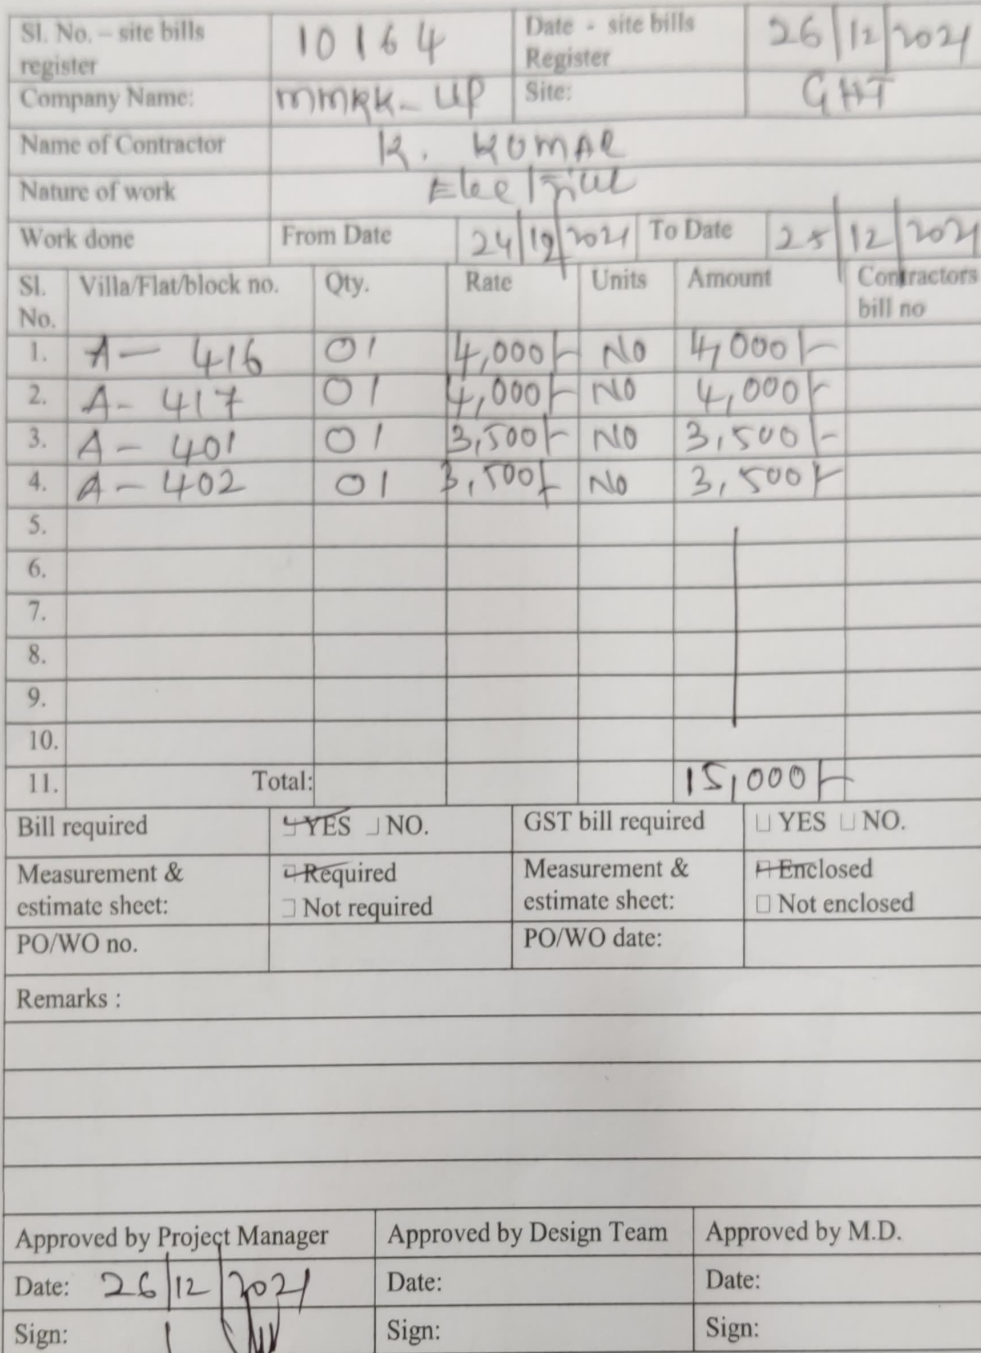 Sl. No. – site bills register 10164 Date - site bills Register 26/12/2021
Company Name: MMRK-UP Site: GHT
Name of Contractor K. KUMAR
Nature of work Electrical
Work done From Date 24/12/2021 To Date 25/12/2021
Sl. No. Villa/Flat/block no. Qty. Rate Units Amount Contractors bill no
1. A - 416 01 4,000/- NO 4,000/-
2. A - 417 01 4,000/- NO 4,000/-
3. A - 401 01 3,500/- NO 3,500/-
4. A - 402 01 3,500/- NO 3,500/-
5.
6.
7.
8.
9.
10.
11. Total: 15,000/-
Bill required YES NO. GST bill required YES NO.
Measurement & estimate sheet: Required Measurement & estimate sheet: Enclosed
Not required Not enclosed
PO/WO no. PO/WO date:
Remarks :
Approved by Project Manager Approved by Design Team Approved by M.D.
Date: 26/12/2021 Date: Date:
Sign: Sign: Sign: